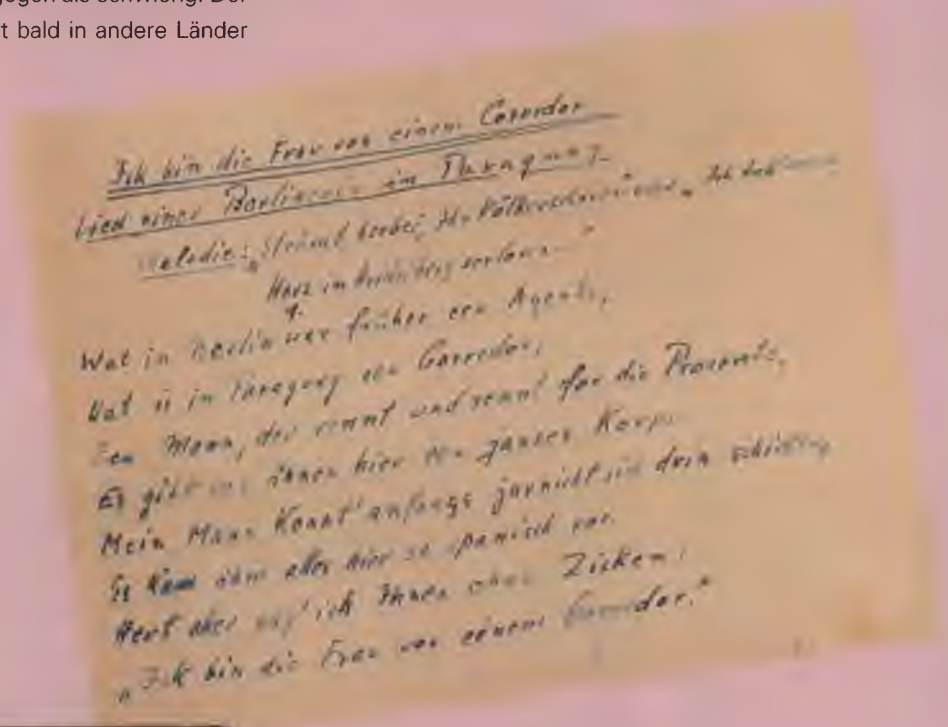 gogen als schwierig. Der
t bald in andere Länder
Ick bin die Frau von einem Corredor
Lied einer Berlinerin in Paraguay
Melodie: „Strömt herbei, Ihr Völkerscharen" „Ich hab mein
Herz in Heidelberg verloren..."
1.
Wat in Berlin war früher een Agent,
Wat is in Paraguay een Corredor,
Een Mann, der rennt und rennt for die Procents,
Es gibt von ihnen hier een janzen Korps.
Mein Mann konnt' anfangs jarnicht sich drein schicken,
Es kam ihm alles hier so spanisch vor.
Heut aber sag' ich Ihnen ohne Zicken:
„Ick bin die Frau von einem Corredor."